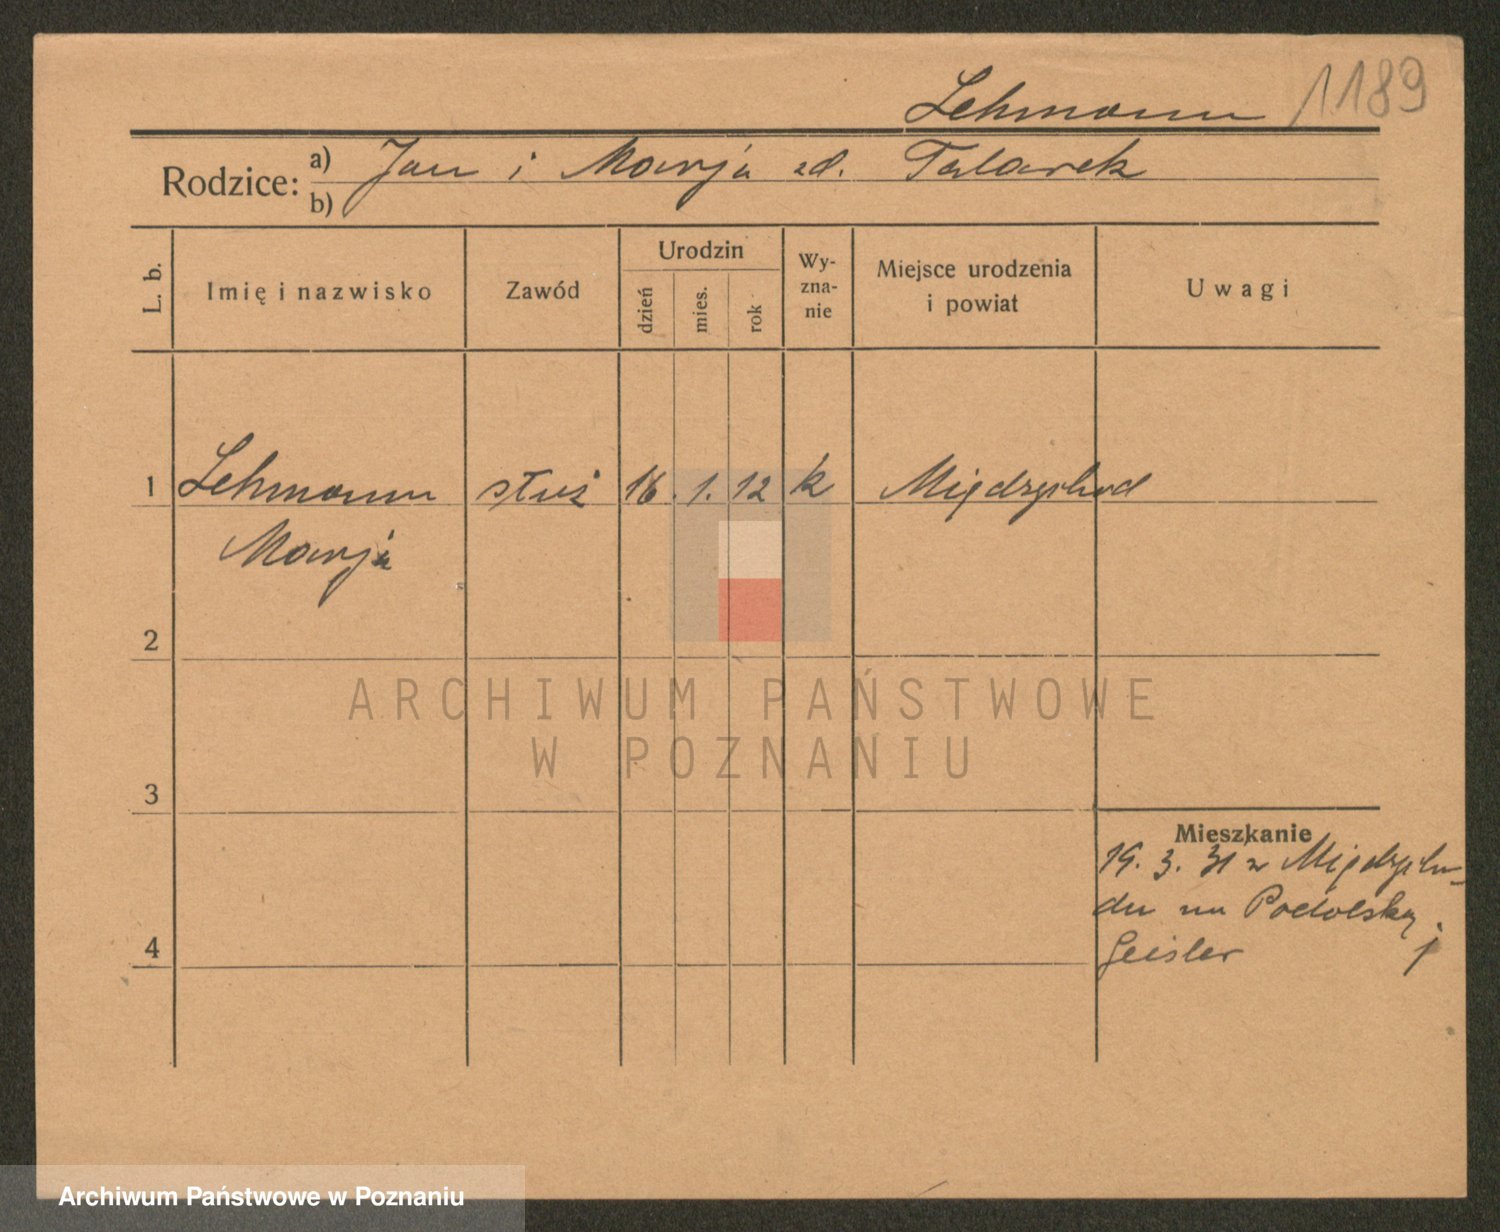 Lehmann 1189
Rodzice: a) Jan i Marja zd. Talarek
b)
L. b.
Imię i nazwisko
Zawód
Urodzin
dzień
mies.
rok
Wy-
zna-
nie
Miejsce urodzenia
i powiat
Uwagi
1 Lehmann służ 16. 1. 12 k Międzychod
Marja
2
3
4
Mieszkanie
19. 3. 31 z Międzycho-
du na Podolską
Geisler
ARCHIWUM PAŃSTWOWE
W POZNANIU
Archiwum Państwowe w Poznaniu